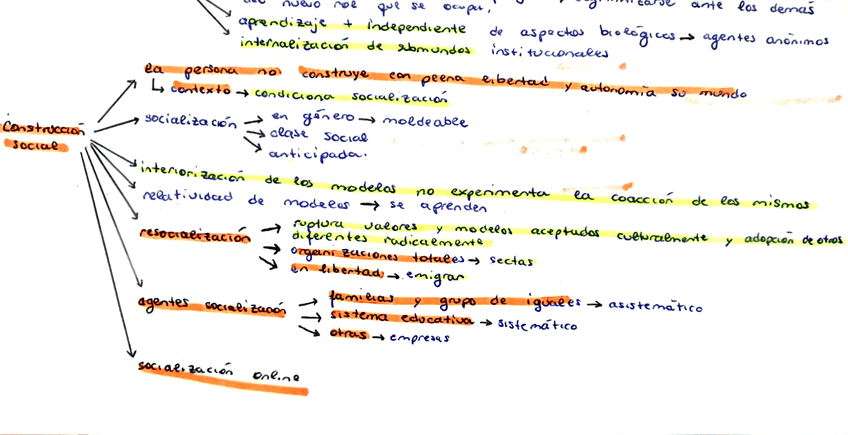 que se ocupa, ante los demás
aprendizaje + independiente de aspectos biológicos → agentes anónimos
internalización de submundos institucionales
la persona no construye con plena libertad y autonomía su mundo
↳ contexto → condiciona socialización
construcción social
socialización → en género → moldeable
→ clase social
→ anticipada.
interiorización de los modelos no experimenta la coacción de los mismos
relatividad de modelos → se aprenden
resocialización → ruptura valores y modelos aceptados culturalmente y adopción de otros
diferentes radicalmente
→ organizaciones totales → sectas
→ en libertad → emigrar
agentes socialización → familias y grupo de iguales → asistemático
→ sistema educativa → sistemático
→ otras → empresas
socialización online